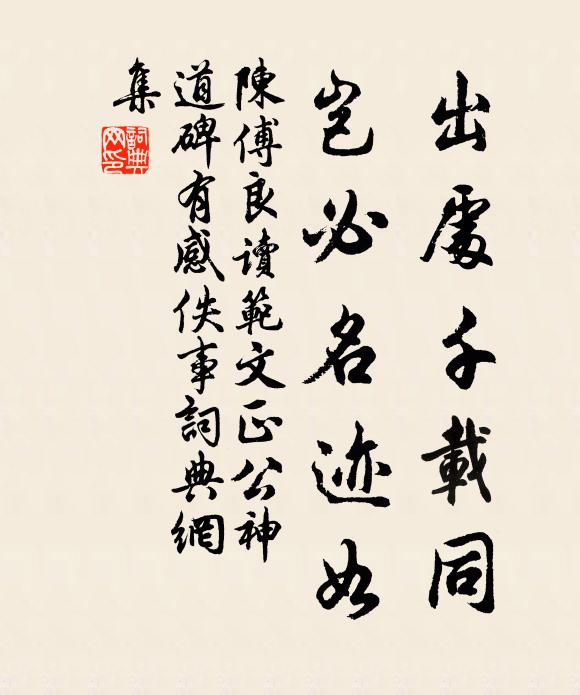 出處千載同
豈必名迹如
陳傅良讀範文正公神
道碑有感佚事詞典網
集
詞典网印